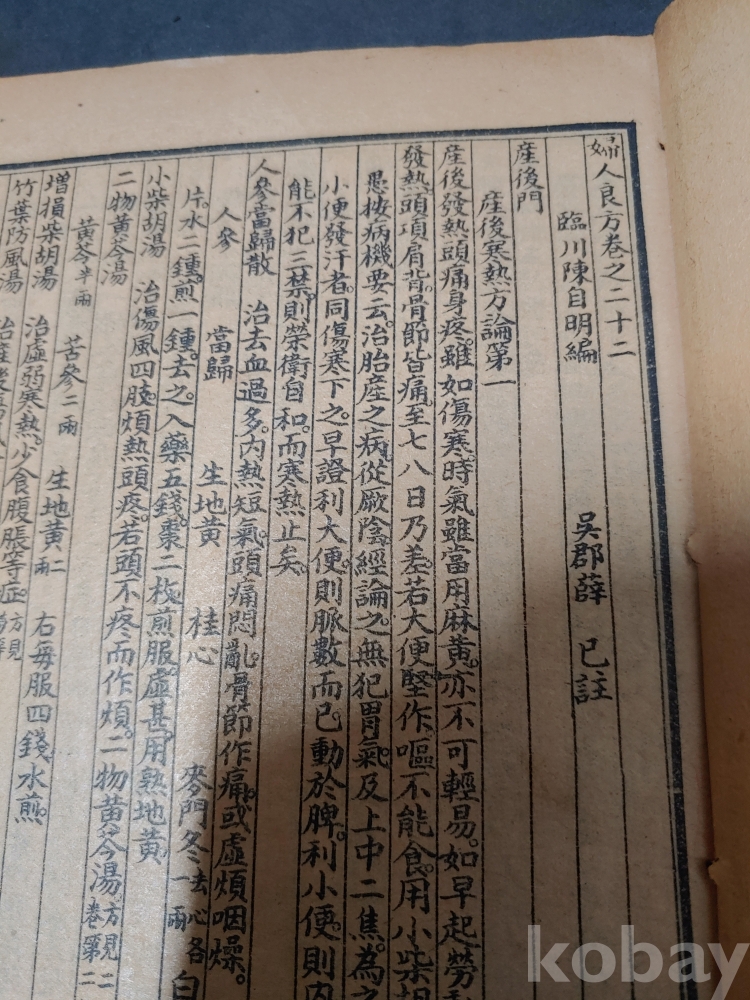 婦人良方卷之二十二
臨川陳自明編 吳郡薛 已註
產後門
產後寒熱方論第一
產後發熱頭痛身疼。雖如傷寒時氣雖當用麻黃。亦不可輕易。如早起勞
發熱頭項肩背骨節皆痛。至七八日乃差。若大便堅作嘔不能食。用小柴胡
愚按病機要云。治胎產之病。從厥陰經論之。無犯胃氣。及上中二焦。為之
小便發汗者。同傷寒下之早證。利大便。則脈數而已。動於脾。利小便。則內
能不犯三禁。則榮衛自和。而寒熱止矣。
人參當歸散 治去血過多。內熱短氣。頭痛悶亂。骨節作痛。或虛煩咽燥。
人參 當歸 生地黃 桂心 麥門冬去心各一兩 白
片。水二鍾。煎一鍾。去之。入藥五錢。棗二枚。煎服。虛甚。用熟地黃
小柴胡湯 治傷風四肢煩熱頭疼。若頭不疼而作煩。二物黃芩湯方見二卷第二
二物黃芩湯
黃芩半兩 苦參二兩 生地黃二兩 右每服四錢。水煎。
增損柴胡湯 治虛弱寒熱。少食腹脹等症方見
竹葉防風湯 治產後傷風
kobay